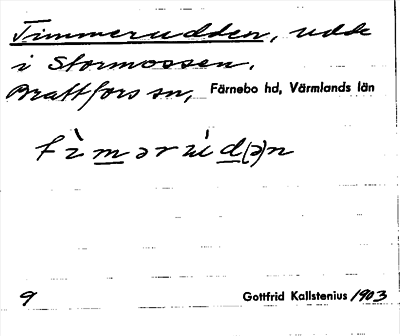 Timmerudden, udde
i Stormossen,
Brattfors sn, Färnebo hd, Värmlands län
9
Gottfrid Kallstenius 1903